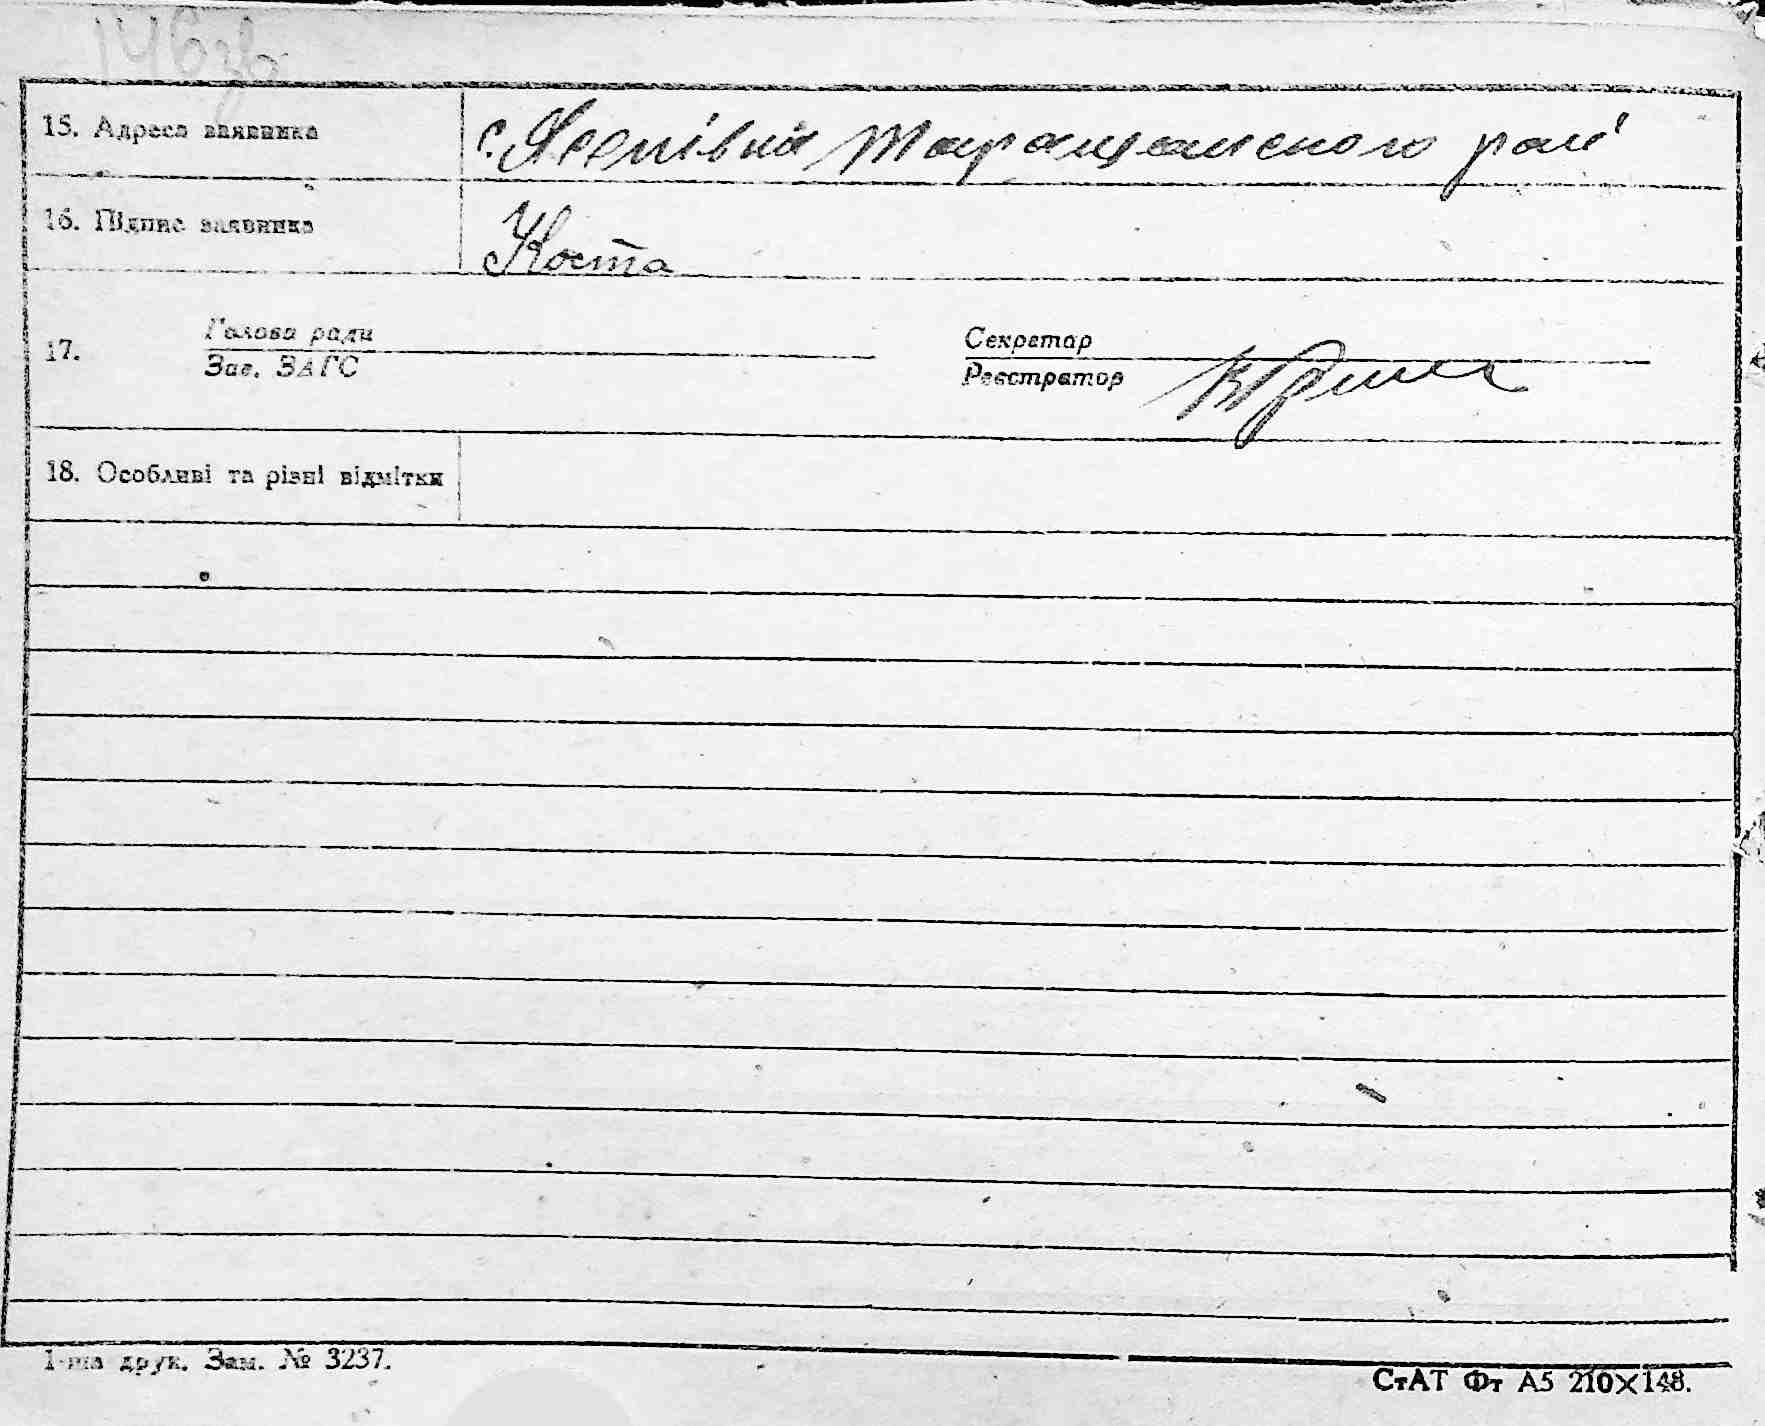 146зв
15. Адреса заявника
с. Ясенівка Таращанского рай
16. Підпис заявника
Коста
17. Голова ради
Зав. ЗАГС
Секретар
Реєстратор
18. Особливі та різні відмітки
1-ша друк. Зам. № 3237.
СтАТ Фт А5 210×148.